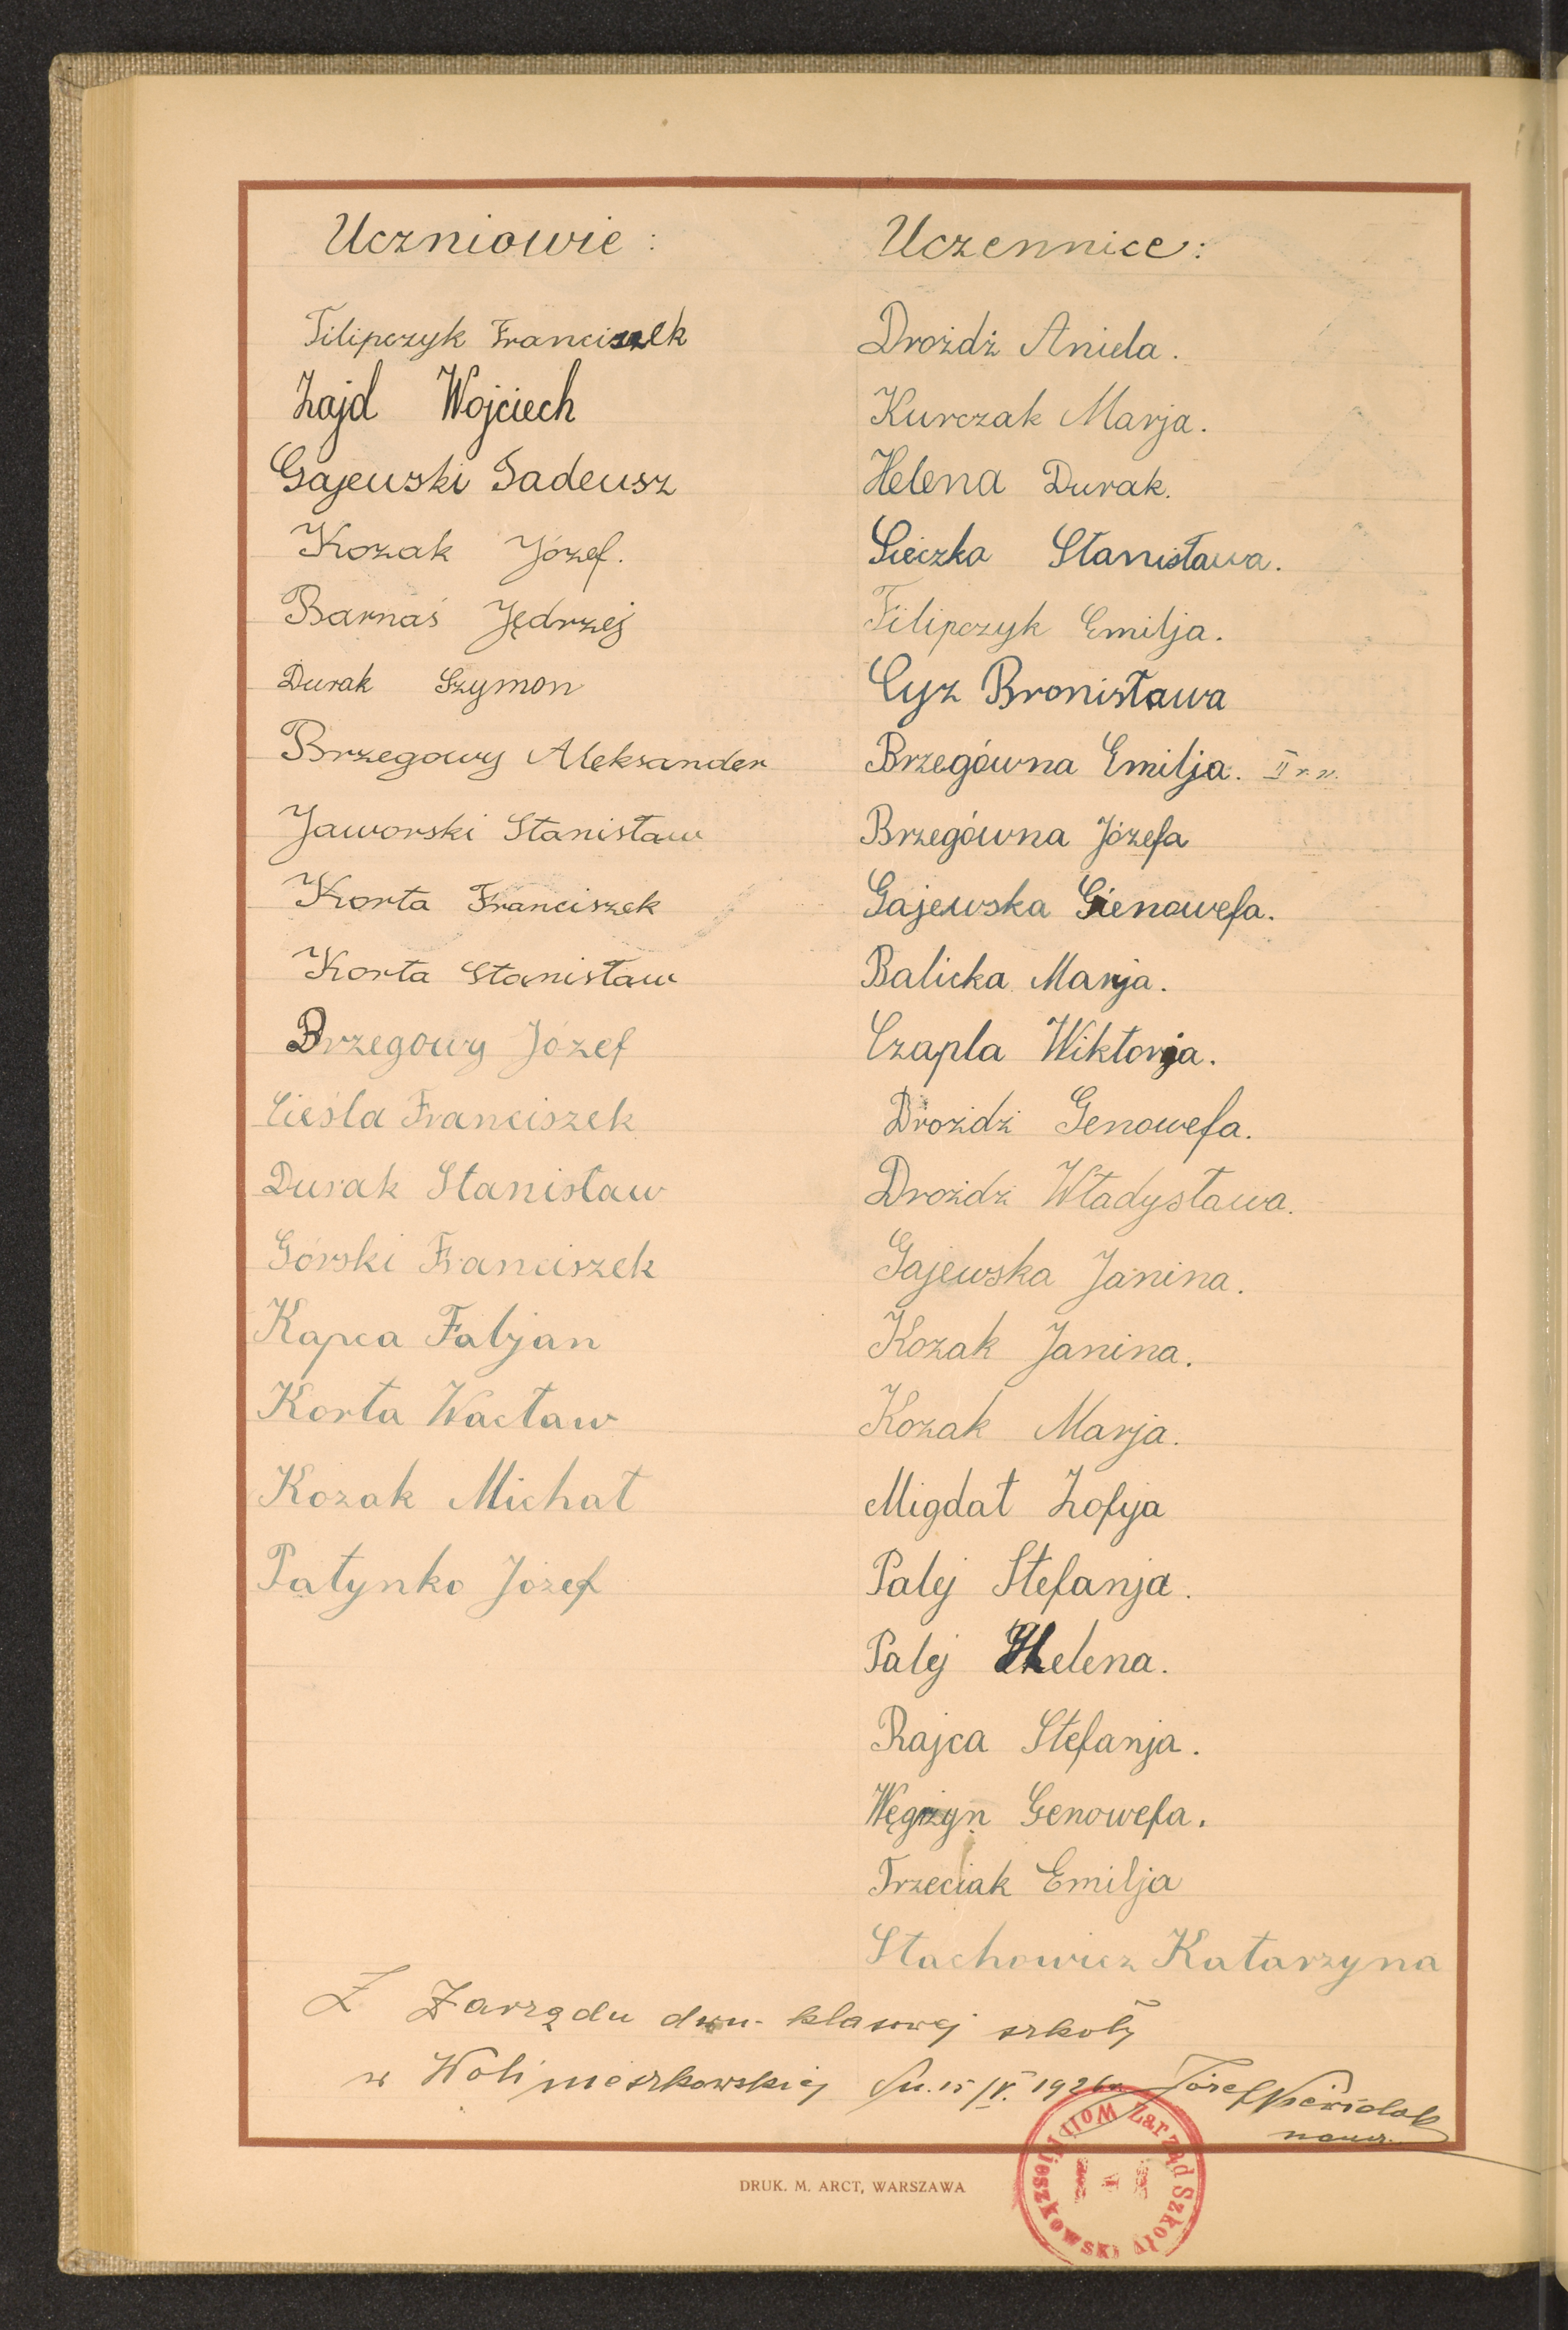 Uczniowie :
Filipczyk Franciszek
Zajd Wojciech
Gajewski Tadeusz
Kozak Józef.
Barnaś Jędrzej
Durak Szymon
Brzegowy Aleksander
Jaworski Stanisław
Korta Franciszek
Korta Stanisław
Brzegowy Józef
Cieśla Franciszek
Durak Stanisław
Górski Franciszek
Kapca Fabjan
Korta Wacław
Kozak Michał
Patynko Józef
Uczennice :
Drożdż Aniela.
Kurczak Marja.
Helena Durak.
Sieczka Stanisława.
Filipczyk Emilja.
Cyz Bronisława
Brzegówna Emilja. II r. n.
Brzegówna Józefa
Gajewska Gienowefa.
Balicka Marja.
Czapla Wiktorja.
Drożdż Genowefa.
Drożdż Władysława.
Gajewska Janina.
Kozak Janina.
Kozak Marja.
Migdał Zofja
Palej Stefanja.
Palej Helena.
Rajca Stefanja.
Węgrzyn Genowefa.
Trzeciak Emilja
Stachowicz Katarzyna
Z Zarządu dwu-klasowej szkoły
w Woli mieszkowskiej dn. 15/V. 1926 r. Józef
naucz.
DRUK. M. ARCT, WARSZAWA
Zarząd Szkoły Woli Mieszkowski